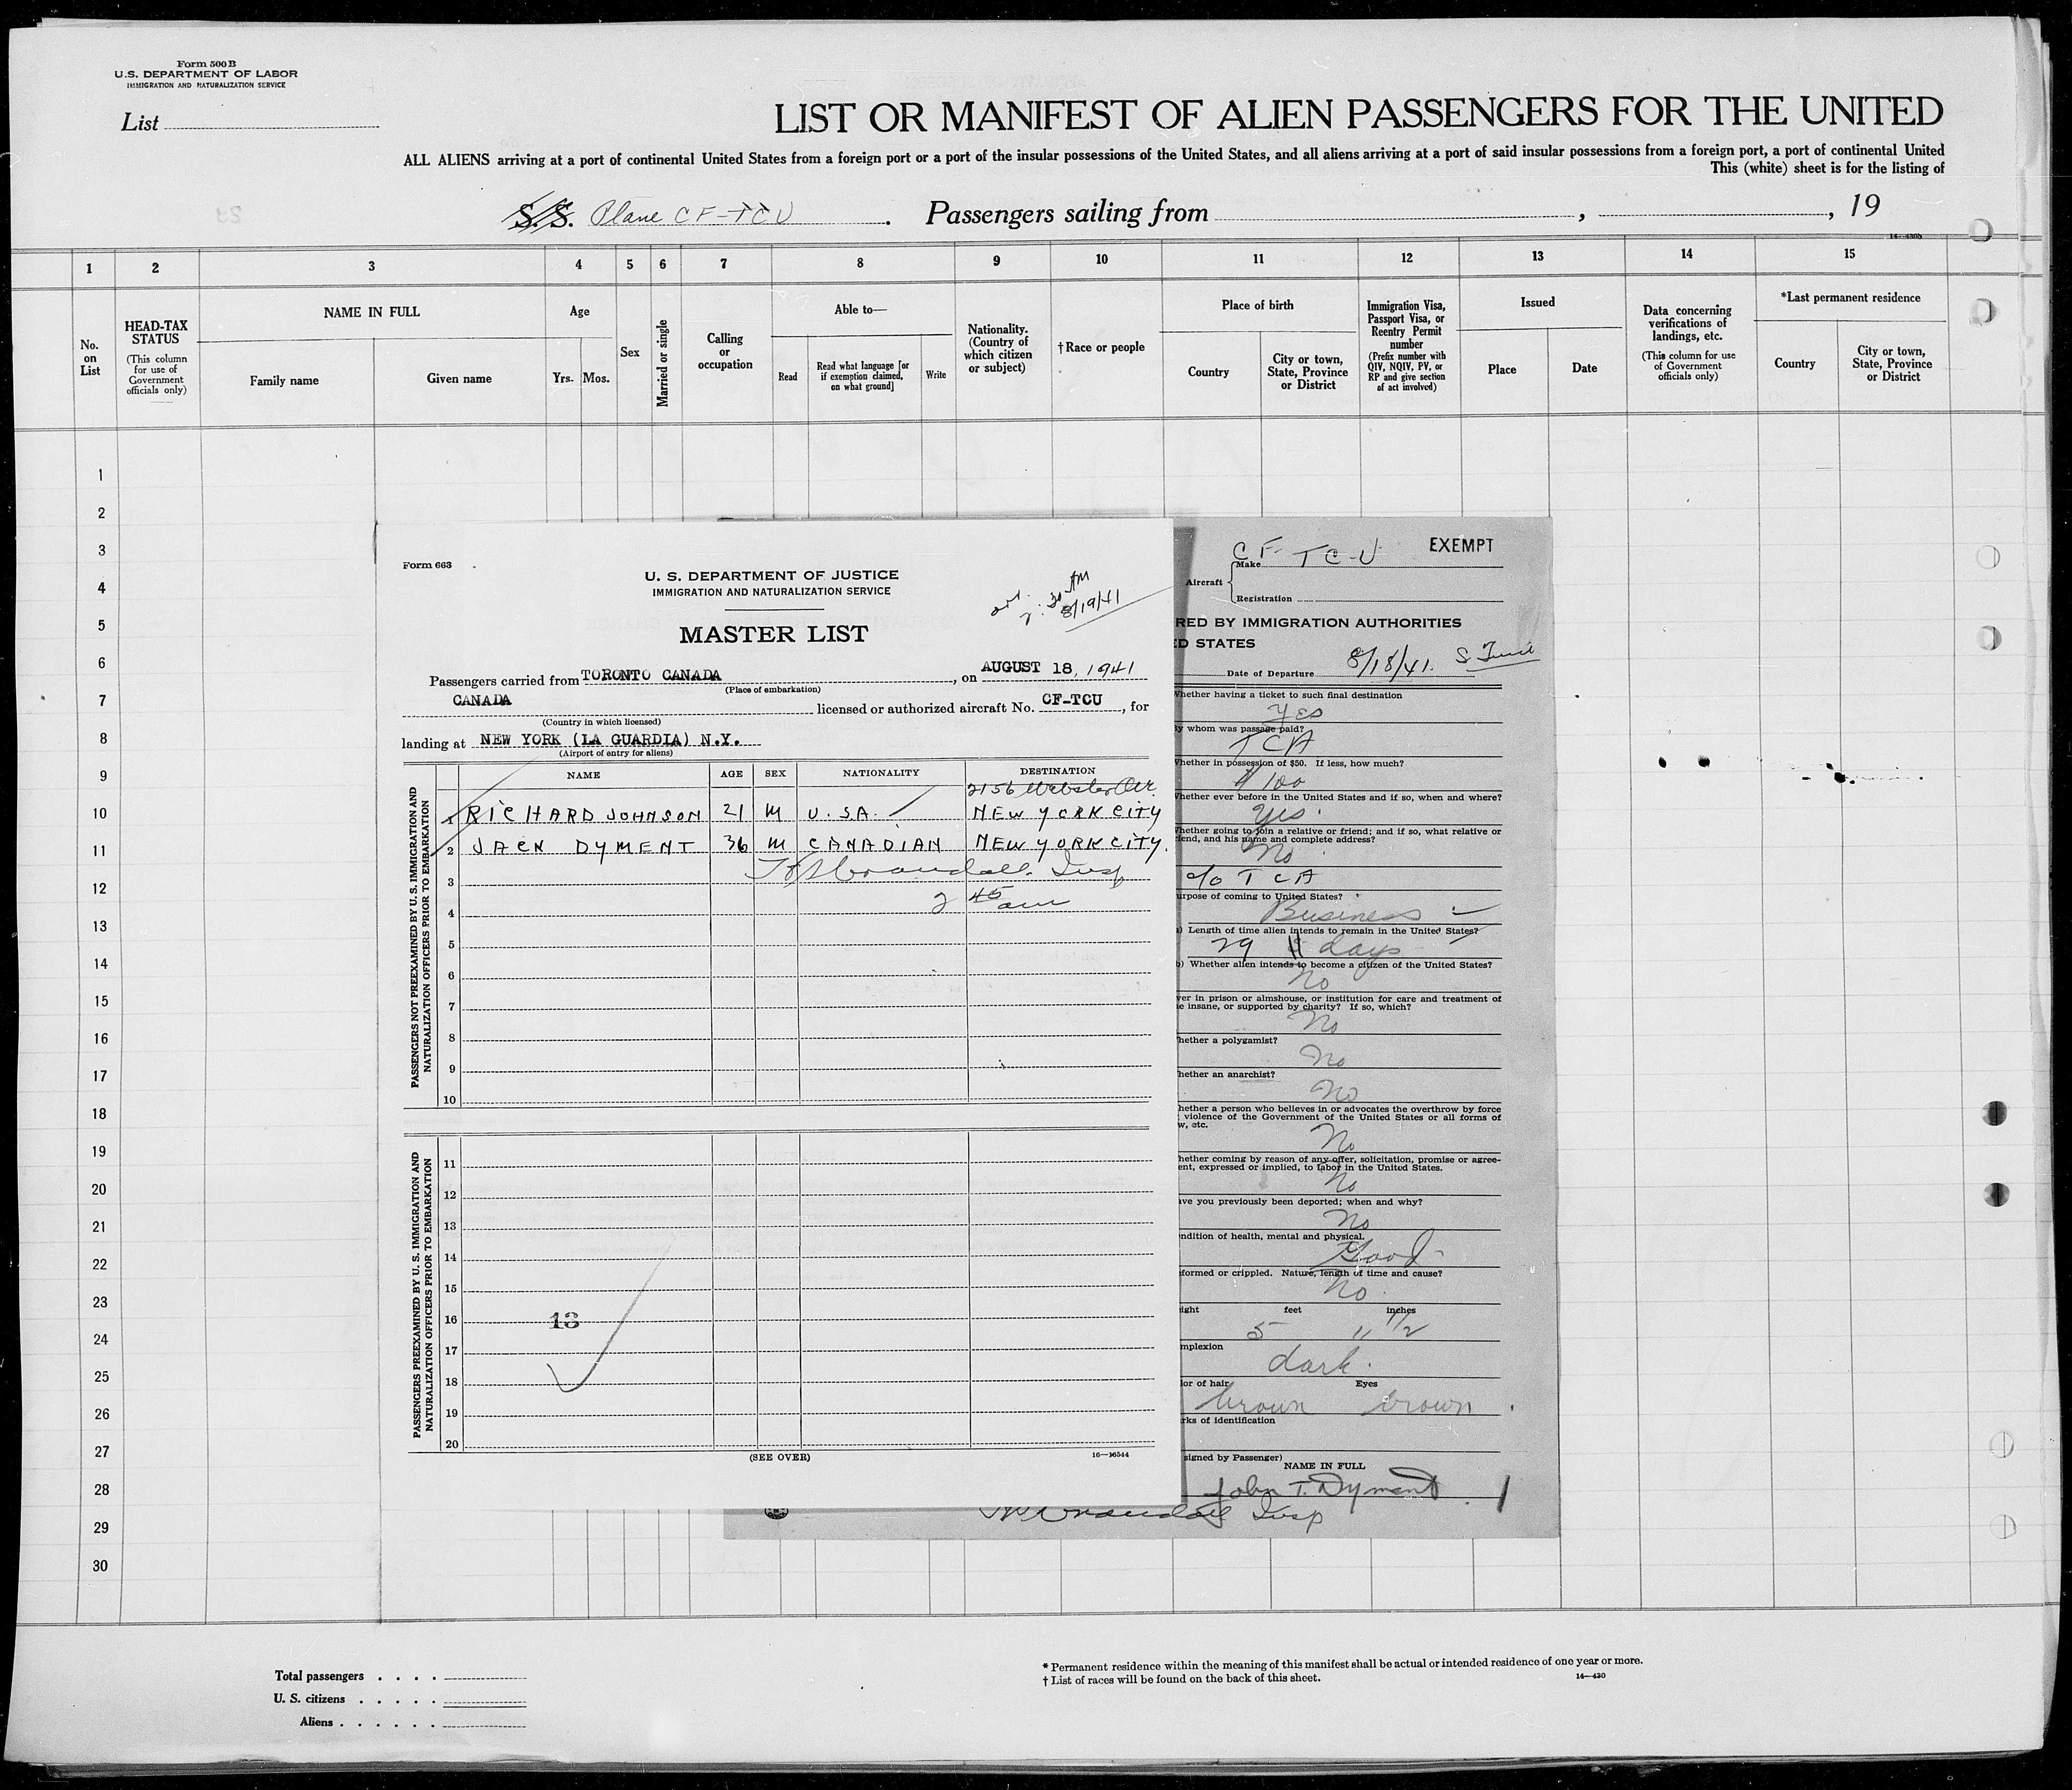 Form 500 B
U.S. DEPARTMENT OF LABOR
IMMIGRATION AND NATURALIZATION SERVICE
List
LIST OR MANIFEST OF ALIEN PASSENGERS FOR THE UNITED
ALL ALIENS arriving at a port of continental United States from a foreign port or a port of the insular possessions of the United States, and all aliens arriving at a port of said insular possessions from a foreign port, a port of continental United
This (white) sheet is for the listing of
S.S. Plane CF-TCU . Passengers sailing from , , 19
14-4305
1 2 3 4 5 6 7 8 9 10 11 12 13 14 15
No. on List
HEAD-TAX STATUS
(This column for use of Government officials only)
NAME IN FULL
Family name
Given name
Age
Yrs. Mos.
Sex
Married or single
Calling or occupation
Able to—
Read
Read what language [or if exemption claimed, on what ground]
Write
Nationality. (Country of which citizen or subject)
† Race or people
Place of birth
Country
City or town, State, Province or District
Immigration Visa, Passport Visa, or Reentry Permit number
(Prefix number with QIV, NQIV, PV, or RP and give section of act involved)
Issued
Place
Date
Data concerning verifications of landings, etc.
(This column for use of Government officials only)
*Last permanent residence
Country
City or town, State, Province or District
1
2
3
4
5
6
7
8
9
10
11
12
13
14
15
16
17
18
19
20
21
22
23
24
25
26
27
28
29
30
Form 663
U. S. DEPARTMENT OF JUSTICE
IMMIGRATION AND NATURALIZATION SERVICE
arr. 2:30 AM
8/19/41
MASTER LIST
Passengers carried from TORONTO CANADA , on AUGUST 18, 1941
(Place of embarkation)
CANADA licensed or authorized aircraft No. CF-TCU , for
(Country in which licensed)
landing at NEW YORK (LA GUARDIA) N.Y.
(Airport of entry for aliens)
NAME AGE SEX NATIONALITY DESTINATION
PASSENGERS NOT PREEXAMINED BY U. S. IMMIGRATION AND NATURALIZATION OFFICERS PRIOR TO EMBARKATION
2156 Webster Ave.
1 RICHARD JOHNSON 21 M U.S.A. NEW YORK CITY
2 JACK DYMENT 36 M CANADIAN NEW YORK CITY.
3 Crandall Insp
4 2 45 am
5
6
7
8
9
10
PASSENGERS PREEXAMINED BY U. S. IMMIGRATION AND NATURALIZATION OFFICERS PRIOR TO EMBARKATION
11
12
13
14
15
16 13
17
18
19
20
(SEE OVER)
16—16544
CF-TCU
EXEMPT
Aircraft { Make
Registration
RED BY IMMIGRATION AUTHORITIES
D STATES
Date of Departure 8/18/41.
hether having a ticket to such final destination
Yes
y whom was passage paid?
TCA
hether in possession of $50. If less, how much?
$ 100
hether ever before in the United States and if so, when and where?
Yes
hether going to join a relative or friend; and if so, what relative or
end, and his name and complete address?
No
c/o TCA
urpose of coming to United States?
Business
) Length of time alien intends to remain in the United States?
29 days
b) Whether alien intends to become a citizen of the United States?
No
ver in prison or almshouse, or institution for care and treatment of
e insane, or supported by charity? If so, which?
No
hether a polygamist?
No
hether an anarchist?
No
hether a person who believes in or advocates the overthrow by force
violence of the Government of the United States or all forms of
w, etc.
No
hether coming by reason of any offer, solicitation, promise or agree-
ent, expressed or implied, to labor in the United States.
No
ave you previously been deported; when and why?
No
ndition of health, mental and physical.
Good
formed or crippled. Nature, length of time and cause?
No
ight feet inches
5 11 1/2
mplexion
dark.
lor of hair Eyes
brown brown
rks of identification
signed by Passenger)
NAME IN FULL
John T. Dyment
Crandall Insp
Total passengers
U. S. citizens
Aliens
* Permanent residence within the meaning of this manifest shall be actual or intended residence of one year or more.
† List of races will be found on the back of this sheet.
14—430